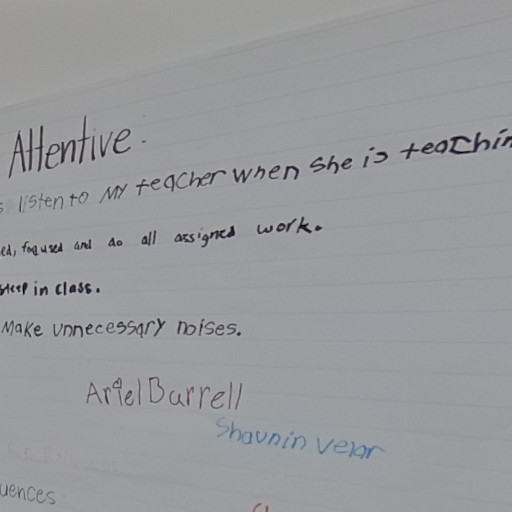 Attentive.
s listen to My teacher when she is teachin
ed, foqused and do all assigned work.
sleep in class.
Make unnecessary noises.
Ariel Burrell
Shaunin velar
uences